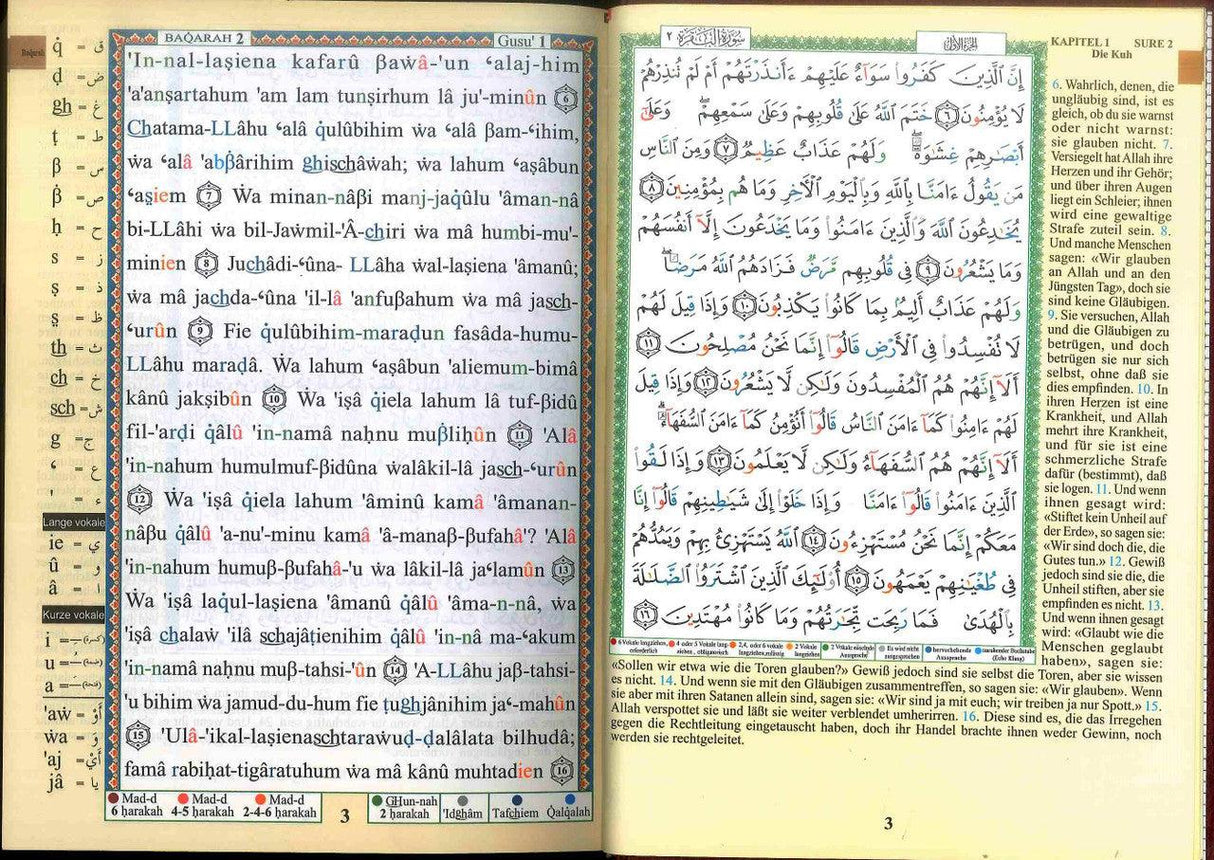 BAQARAH 2
Gusu' 1
'In-nal-laṣiena kafarû βaẇâ-'un ʻalaj-him
'a'anṣartahum 'am lam tunṣirhum lâ ju'-minûn 6
Chatama-LLâhu ʻalâ q̇ulûbihim ẇa ʻalâ βam-ʻihim,
ẇa ʻalâ 'abβ̣ârihim ghischâẇah; ẇa lahum ʻaṣâbun
ʻaṣiem 7 Ẇa minan-nâβi manj-jaq̇ûlu 'âman-nâ
bi-LLâhi ẇa bil-Jaẇmil-'Â-chiri ẇa mâ humbi-mu'-
minien 8 Juchâdi-ʻûna- LLâha ẇal-laṣiena 'âmanû;
ẇa mâ jachda-ʻûna 'il-lâ 'anfuβahum ẇa mâ jasch-
ʻurûn 9 Fie q̇ulûbihim-maraḍun fasâda-humu-
LLâhu maraḍâ. Ẇa lahum ʻaṣâbun 'aliemum-bimâ
kânû jakṣibûn 10 Ẇa 'iṣâ q̇iela lahum lâ tuf-βidû
fil-'arḍi q̇âlû 'in-namâ naḥnu muβ̣liḥûn 11 'Alâ
'in-nahum humulmuf-βidûna ẇalâkil-lâ jasch-ʻurûn
12 Ẇa 'iṣâ q̇iela lahum 'âminû kamâ 'âmanan-
nâβu q̇âlû 'a-nu'-minu kamâ 'â-manaβ-βufahâ'? 'Alâ
'in-nahum humuβ-βufahâ-'u ẇa lâkil-lâ jaʻlamûn 13
Ẇa 'iṣâ laq̇ul-laṣiena 'âmanû q̇âlû 'âma-n-nâ, ẇa
'iṣâ chalaẇ 'ilâ schajâṭienihim q̇âlû 'in-nâ ma-ʻakum
'in-namâ naḥnu muβ-tahsi-'ûn 14 'A-LLâhu jaβ-tahsi-
'u bihim ẇa jamud-du-hum fie ṭughjânihim jaʻ-mahûn
15 'Ulâ-'ikal-laṣienaschtaraẇuḍ-ḍalâlata bilhudâ;
famâ rabiḥat-tigâratuhum ẇa mâ kânû muhtadien 16
q̇ = ق
ḍ = ض
gh = غ
ṭ = ط
β = س
β̣ = ص
ḥ = ح
s = ز
ṣ = ذ
ṣ = ظ
th = ث
ch = خ
sch = ش
g = ج
ʻ = ع
' = ء
Lange vokale
ie = ي
û = و
â = ا
Kurze vokale
i =
u =
a =
'aẇ = أَوْ
ẇa = وَ
'aj = أَيْ
jâ = يا
Mad-d 6 ḥarakah
Mad-d 4-5 ḥarakah
Mad-d 2-4-6 ḥarakah
3
GHun-nah 2 ḥarakah
'Idghâm
Tafchiem
Q̇alq̇alah
سورة البقرة ٢
الجزء الأول
إِنَّ ٱلَّذِينَ كَفَرُوا۟ سَوَآءٌ عَلَيْهِمْ ءَأَنذَرْتَهُمْ أَمْ لَمْ تُنذِرْهُمْ
لَا يُؤْمِنُونَ ٦ خَتَمَ ٱللَّهُ عَلَىٰ قُلُوبِهِمْ وَعَلَىٰ سَمْعِهِمْ ۖ وَعَلَىٰٓ
أَبْصَـٰرِهِمْ غِشَـٰوَةٌ ۖ وَلَهُمْ عَذَابٌ عَظِيمٌ ٧ وَمِنَ ٱلنَّاسِ
مَن يَقُولُ ءَامَنَّا بِٱللَّهِ وَبِٱلْيَوْمِ ٱلْـَٔاخِرِ وَمَا هُم بِمُؤْمِنِينَ ٨
يُخَـٰدِعُونَ ٱللَّهَ وَٱلَّذِينَ ءَامَنُوا۟ وَمَا يَخْدَعُونَ إِلَّآ أَنفُسَهُمْ
وَمَا يَشْعُرُونَ ٩ فِى قُلُوبِهِم مَّرَضٌ فَزَادَهُمُ ٱللَّهُ مَرَضًا ۖ
وَلَهُمْ عَذَابٌ أَلِيمٌۢ بِمَا كَانُوا۟ يَكْذِبُونَ ١٠ وَإِذَا قِيلَ لَهُمْ
لَا تُفْسِدُوا۟ فِى ٱلْأَرْضِ قَالُوٓا۟ إِنَّمَا نَحْنُ مُصْلِحُونَ ١١
أَلَآ إِنَّهُمْ هُمُ ٱلْمُفْسِدُونَ وَلَـٰكِن لَّا يَشْعُرُونَ ١٢ وَإِذَا قِيلَ
لَهُمْ ءَامِنُوا۟ كَمَآ ءَامَنَ ٱلنَّاسُ قَالُوٓا۟ أَنُؤْمِنُ كَمَآ ءَامَنَ ٱلسُّفَهَآءُ ۗ
أَلَآ إِنَّهُمْ هُمُ ٱلسُّفَهَآءُ وَلَـٰكِن لَّا يَعْلَمُونَ ١٣ وَإِذَا لَقُوا۟
ٱلَّذِينَ ءَامَنُوا۟ قَالُوٓا۟ ءَامَنَّا وَإِذَا خَلَوْا۟ إِلَىٰ شَيَـٰطِينِهِمْ قَالُوٓا۟ إِنَّا
مَعَكُمْ إِنَّمَا نَحْنُ مُسْتَهْزِءُونَ ١٤ ٱللَّهُ يَسْتَهْزِئُ بِهِمْ وَيَمُدُّهُمْ
فِى طُغْيَـٰنِهِمْ يَعْمَهُونَ ١٥ أُو۟لَـٰٓئِكَ ٱلَّذِينَ ٱشْتَرَوُا۟ ٱلضَّلَـٰلَةَ
بِٱلْهُدَىٰ فَمَا رَبِحَت تِّجَـٰرَتُهُمْ وَمَا كَانُوا۟ مُهْتَدِينَ ١٦
KAPITEL 1 SURE 2
Die Kuh
6. Wahrlich, denen, die
ungläubig sind, ist es
gleich, ob du sie warnst
oder nicht warnst:
sie glauben nicht. 7.
Versiegelt hat Allah ihre
Herzen und ihr Gehör;
und über ihren Augen
liegt ein Schleier; ihnen
wird eine gewaltige
Strafe zuteil sein. 8.
Und manche Menschen
sagen: «Wir glauben
an Allah und an den
Jüngsten Tag», doch sie
sind keine Gläubigen.
9. Sie versuchen, Allah
und die Gläubigen zu
betrügen, und doch
betrügen sie nur sich
selbst, ohne daß sie
dies empfinden. 10. In
ihren Herzen ist eine
Krankheit, und Allah
mehrt ihre Krankheit,
und für sie ist eine
schmerzliche Strafe
dafür (bestimmt), daß
sie logen. 11. Und wenn
ihnen gesagt wird:
«Stiftet kein Unheil auf
der Erde», so sagen sie:
«Wir sind doch die, die
Gutes tun.» 12. Gewiß
jedoch sind sie die, die
Unheil stiften, aber sie
empfinden es nicht. 13.
Und wenn ihnen gesagt
wird: «Glaubt wie die
Menschen geglaubt
haben», sagen sie:
«Sollen wir etwa wie die Toren glauben?» Gewiß jedoch sind sie selbst die Toren, aber sie wissen
es nicht. 14. Und wenn sie mit den Gläubigen zusammentreffen, so sagen sie: «Wir glauben». Wenn
sie aber mit ihren Satanen allein sind, sagen sie: «Wir sind ja mit euch; wir treiben ja nur Spott.» 15.
Allah verspottet sie und läßt sie weiter verblendet umherirren. 16. Diese sind es, die das Irregehen
gegen die Rechtleitung eingetauscht haben, doch ihr Handel brachte ihnen weder Gewinn, noch
werden sie rechtgeleitet.
3